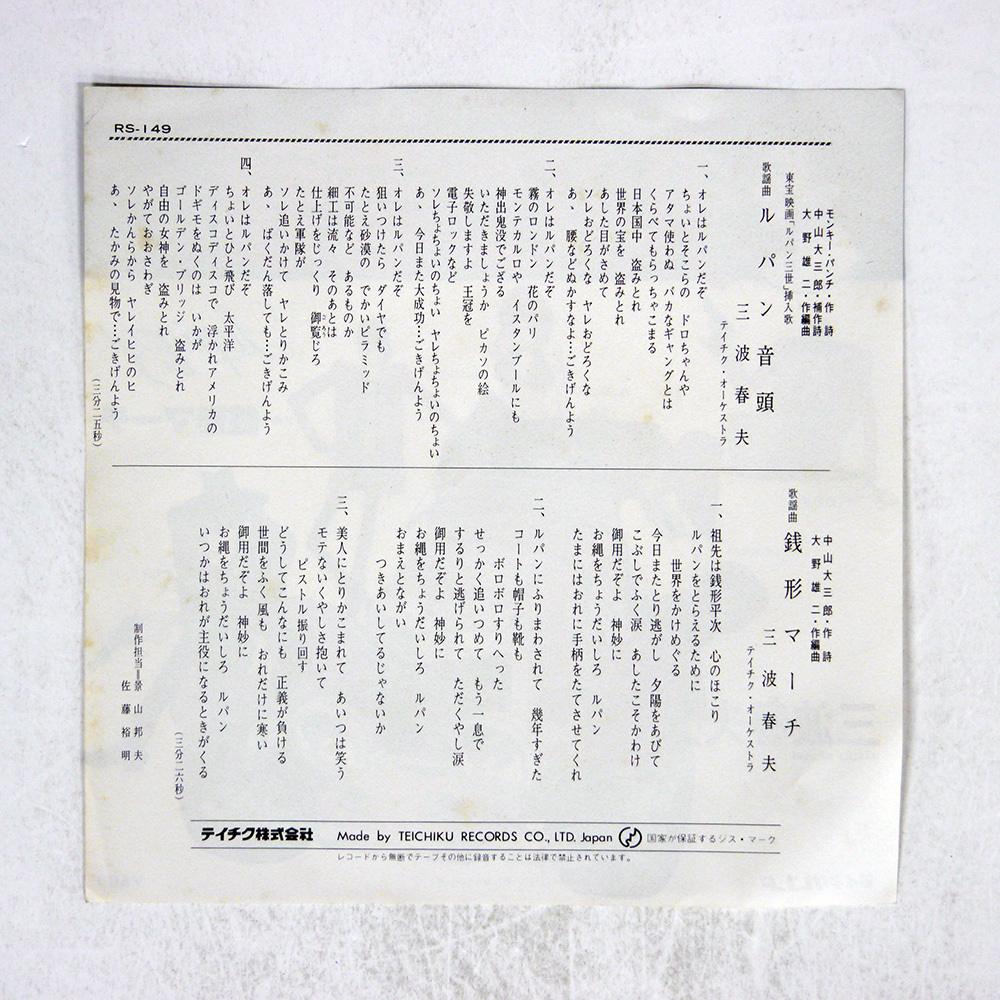 RS-149
モンキー・パンチ・作詩
中山大三郎・補作詩
大野雄二・作編曲
東宝映画「ルパン三世」挿入歌
歌謡曲 ルパン音頭
三波春夫
テイチク・オーケストラ
一、オレはルパンだぞ
ちょいとそこらの ドロちゃんや
アタマ使わぬ バカなギャングとは
くらべてもらっちゃこまる
日本国中 盗みとれ
世界の宝を 盗みとれ
あした目がさめて
ソレおどろくな ヤレおどろくな
あゝ 腰などぬかすなよ…ごきげんよう
二、オレはルパンだぞ
霧のロンドン 花のパリ
モンテカルロや イスタンブールにも
神出鬼没でござる
いただきましょうか ピカソの絵
失敬しますよ 王冠を
電子ロックなど
ソレちょちょいのちょい ヤレちょちょいのちょい
あゝ 今日また大成功…ごきげんよう
三、オレはルパンだぞ
狙いつけたら ダイヤでも
たとえ砂漠の でかいピラミッド
不可能など あるものか
細工は流々 そのあとは
仕上げをじっくり 御覧じろ
ごろう
たとえ軍隊が
ソレ追いかけて ヤレとりかこみ
あゝ ばくだん落しても…ごきげんよう
四、オレはルパンだぞ
ちょいとひと飛び 太平洋
ディスコディスコで 浮かれアメリカの
ドギモをぬくのは いかが
ゴールデン・ブリッジ 盗みとれ
自由の女神を 盗みとれ
やがておおさわぎ
ソレかんらから ヤレイヒヒのヒ
あゝ たかみの見物で…ごきげんよう
(三分二五秒)
中山大三郎・作詩
大野雄二・作編曲
歌謡曲 銭形マーチ
三波春夫
テイチク・オーケストラ
一、祖先は銭形平次 心のほこり
ルパンをとらえるために
世界をかけめぐる
今日またとり逃がし 夕陽をあびて
こぶしでふく涙 あしたこそかわけ
御用だぞよ 神妙に
お縄をちょうだいしろ ルパン
たまにはおれに手柄をたてさせてくれ
二、ルパンにふりまわされて 幾年すぎた
コートも帽子も靴も
ボロボロすりへった
せっかく追いつめて もう一息で
するりと逃げられて ただくやし涙
御用だぞよ 神妙に
お縄をちょうだいしろ ルパン
おまえとながい
つきあいしてるじゃないか
三、美人にとりかこまれて あいつは笑う
モテないくやしさ抱いて
ピストル振り回す
どうしてこんなにも 正義が負ける
世間をふく風も おれだけに寒い
御用だぞよ 神妙に
お縄をちょうだいしろ ルパン
いつかはおれが主役になるときがくる
(三分二六秒)
制作担当=景山邦夫
佐藤裕明
テイチク株式会社 Made by TEICHIKU RECORDS CO., LTD. Japan 国家が保証するジス・マーク
レコードから無断でテープその他に録音することは法律で禁止されています。